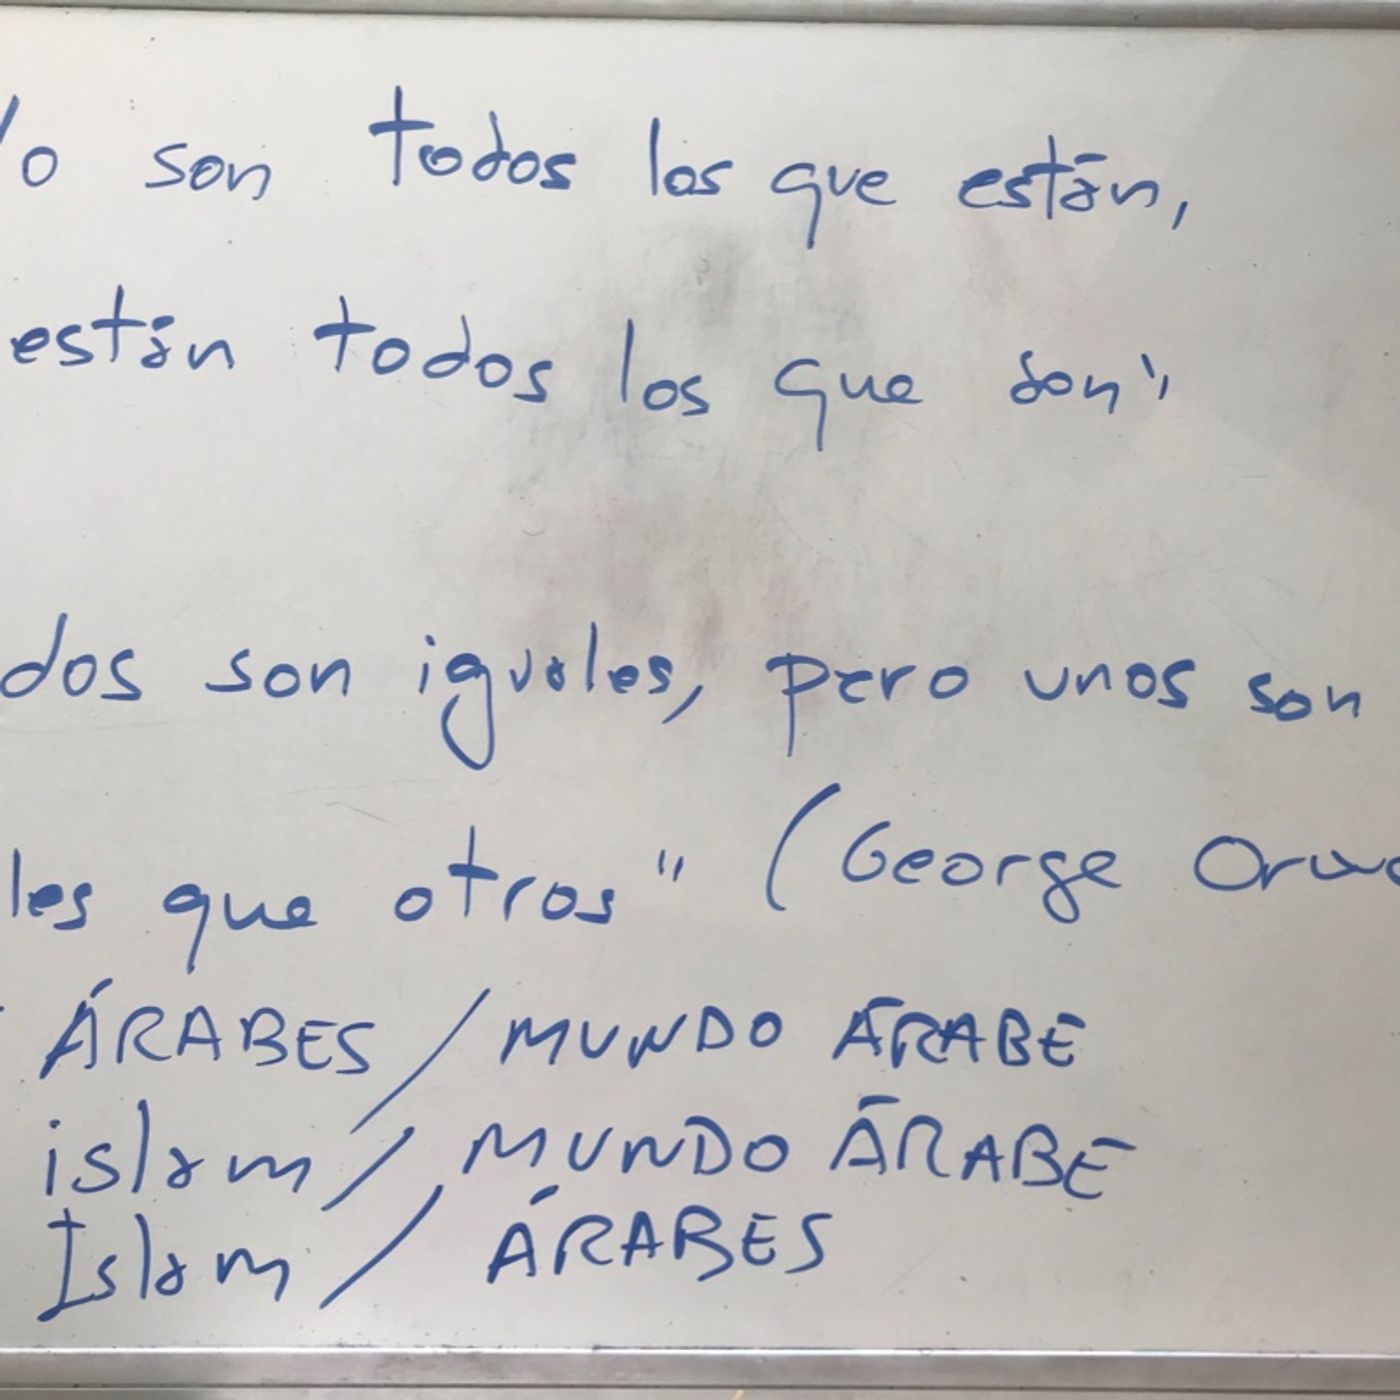 No son todos los que están,
están todos los que son"
dos son iguales, pero unos son
les que otros" (George Orwe
ÁRABES / MUNDO ÁRABE
islam / MUNDO ÁRABE
Islam / ÁRABES